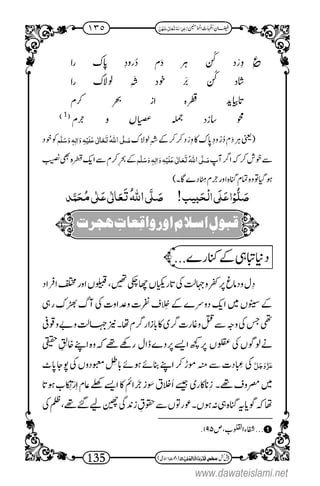 ۱۳۵
ورد کُن ہر دم درودِ پاک را
شاد کن بر خود شہِ لولاک را
تابیابد قطرہ از بحرِ کرم
محو سازد جملہ عصیاں و جرم (۱)
(یعنی ہر دم درودِ پاک کا ورد کر کے شہِ لولاک صَلَّی اللہُ تَعَالٰی عَلَیْہِ وَاٰلِہٖ وَسَلَّم کو خود
سے خوش کر کہ اگر آپ صَلَّی اللہُ تَعَالٰی عَلَیْہِ وَاٰلِہٖ وَسَلَّم کے بحرِ کرم سے ایک قطرہ بھی نصیب
ہو گیا تو وہ تمام گناہ اور جرم مٹا دے گا۔)
صَلُّوْا عَلَی الْحَبِیب! صَلَّی اللہُ تَعَالٰی عَلٰی مُحَمَّد
قبولِ اسلام اور واقعاتِ ہجرت
دنیا تباہی کے کنارے...
دل و دماغ پر کفر و جہالت کی تاریکیاں چھا چکی تھیں، قبیلوں اور مختلف افراد
کے سینوں میں ایک دوسرے کے خلاف نفرت و عداوت کی آگ بھڑک رہی
تھی جس کی وجہ سے قتل و غارت گری کا بازار گرم تھا۔ نیز جہالت و بے وقوفی
نے لوگوں کی عقلوں پر کچھ ایسے پردے ڈال رکھے تھے کہ وہ اپنے خالقِ حقیقی
عَزَّوَجَلَّ کی عبادت سے منہ موڑ کر اپنے بنائے ہوئے باطل معبودوں کی پوجا پاٹ
میں مصروف تھے۔ زناکاری جیسے اخلاق سوز جرائم کا ایسے کھلے عام ارتکاب ہوتا
تھا کہ گویا یہ گناہ ہی نہ ہوں۔ عورتوں سے حقوقِ زندگی چھین لیے گئے تھے، ظلم کی
۱...شفاء القلوب، ص۱۹۵.
135
www.dawateislami.net